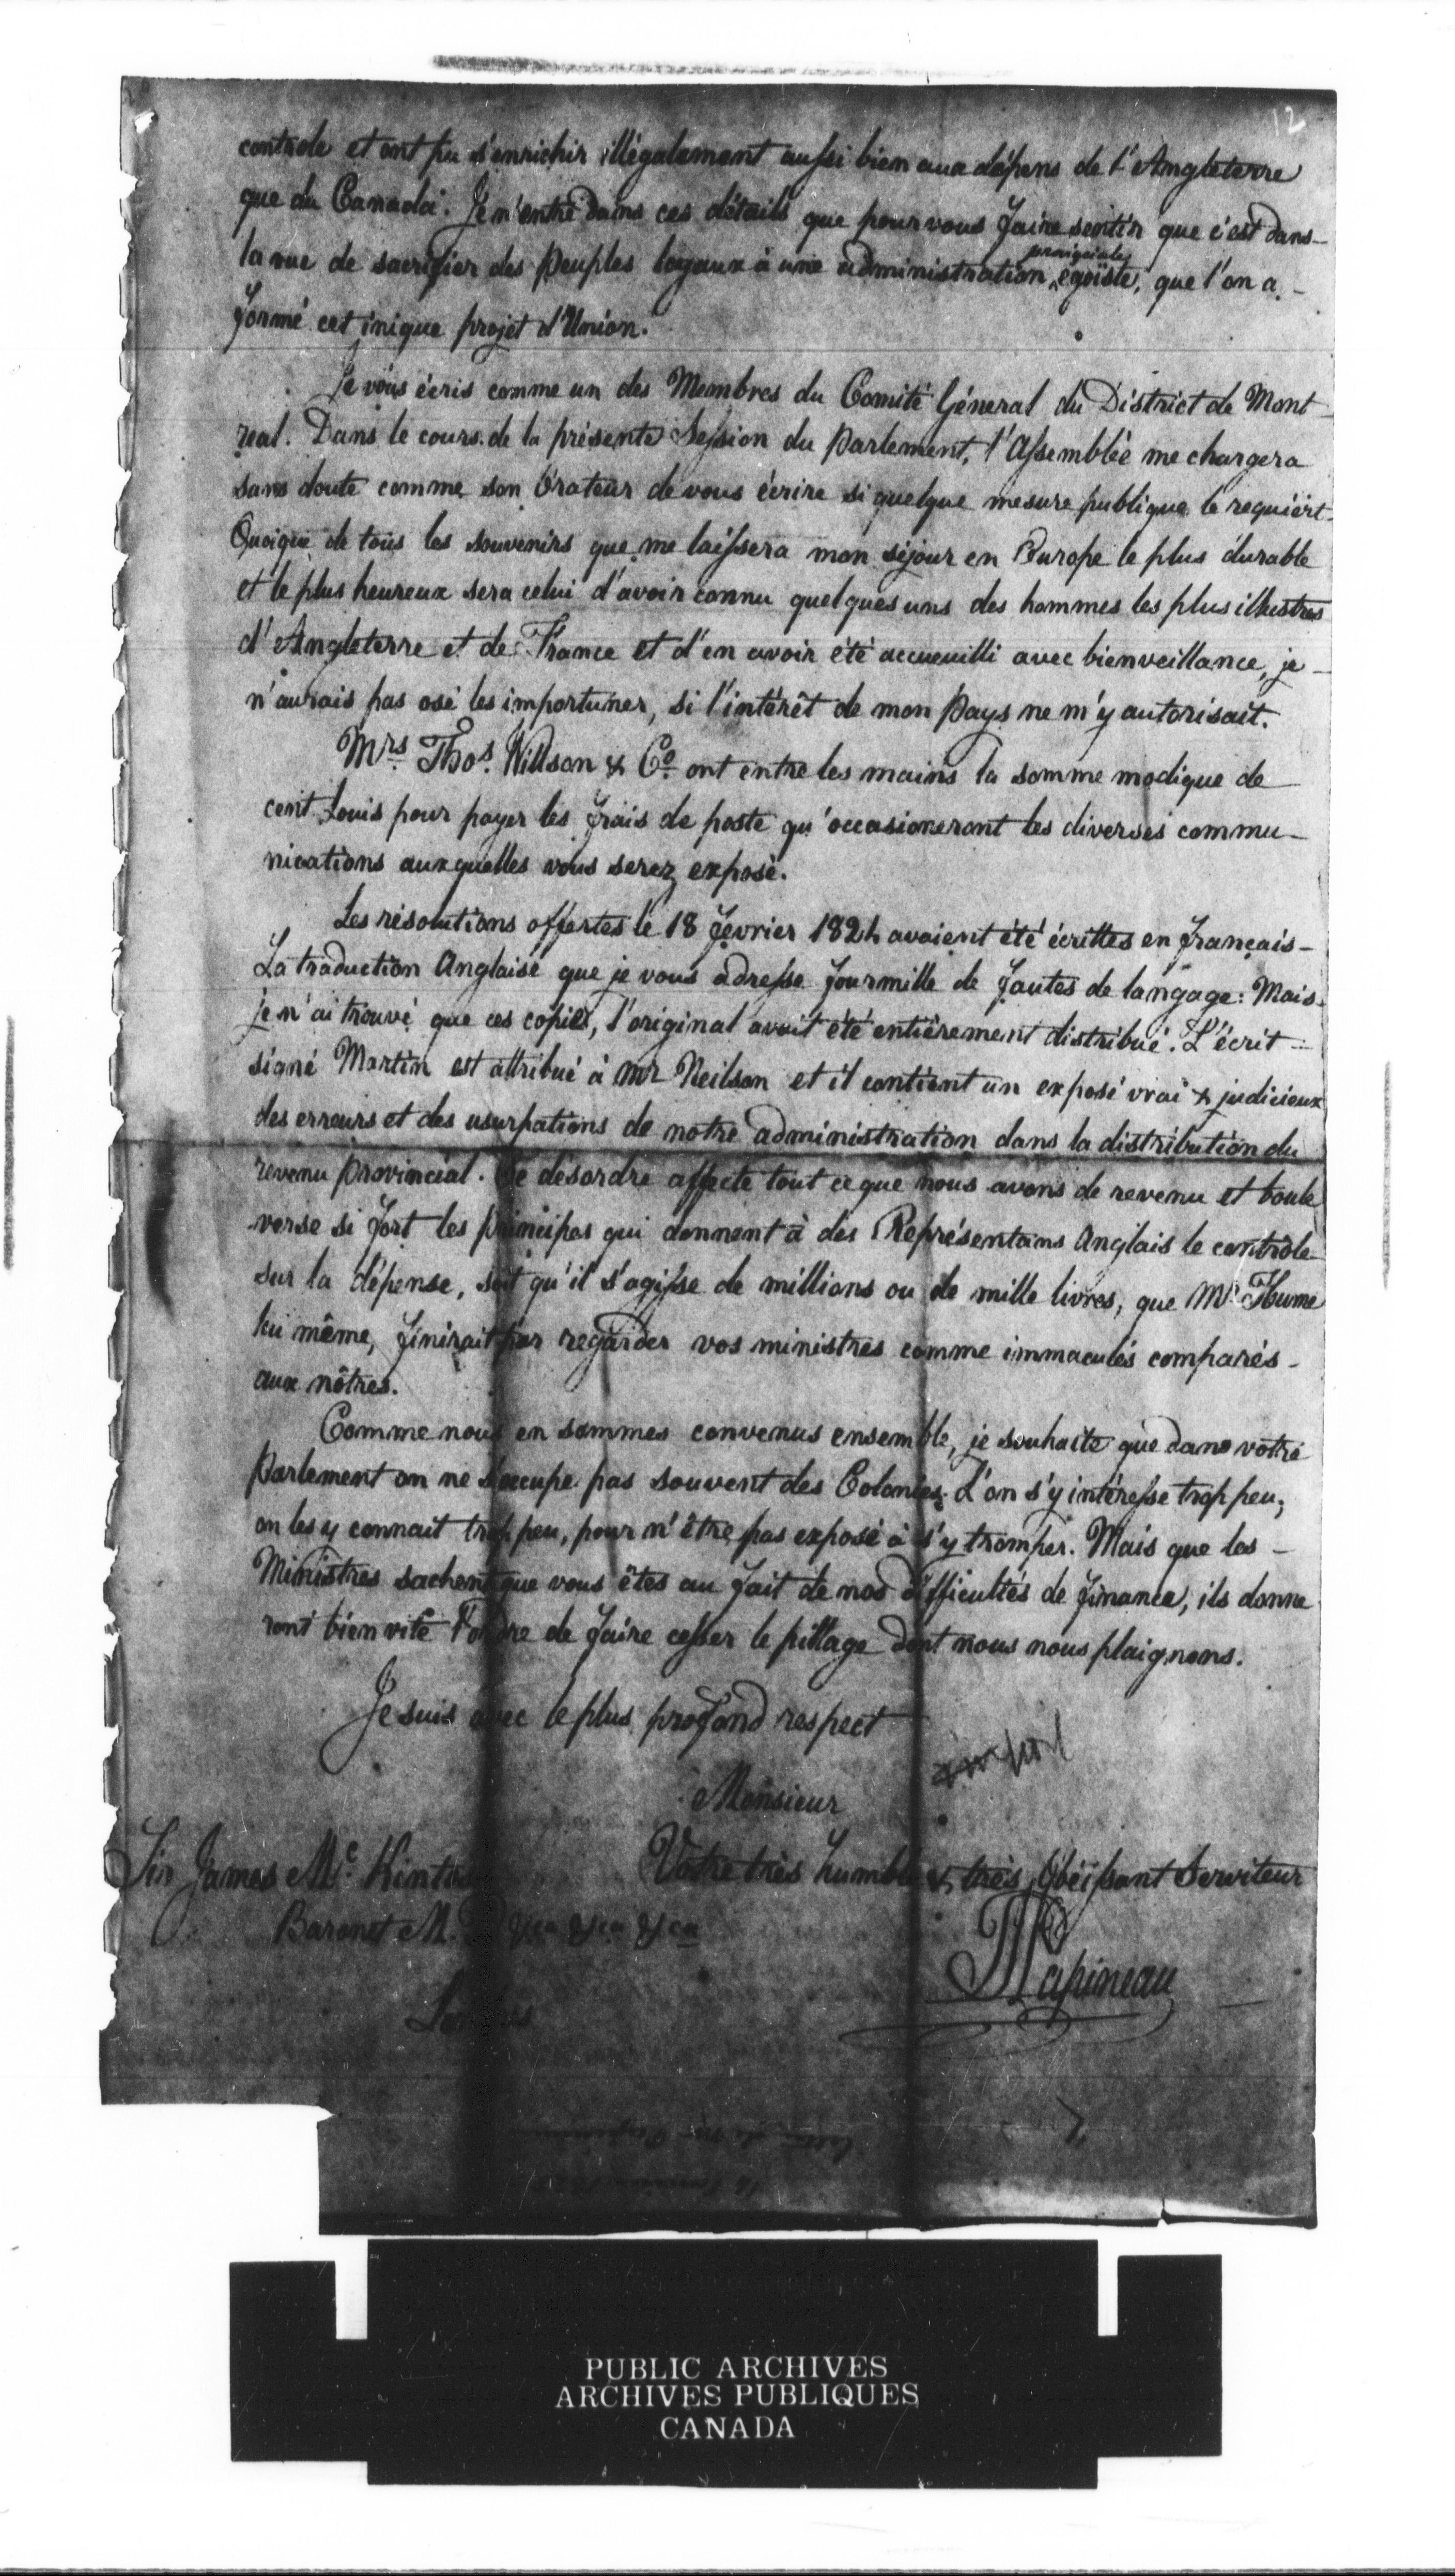 12
controle et ont pu s'enrichir illégalement aussi bien aux dépens de l'Angleterre
que du Canada. Je n'entre dans ces détails que pour vous faire sentir que c'est dans
la vue de sacrifier des peuples loyaux à une administration provinciale égoïste, que l'on a
formé cet inique projet d'Union.
Je vous écris comme un des Membres du Comité Géneral du District de Mont
real. Dans le cours de la présente Session du Parlement, l'Assemblée me chargera
sans doute comme son Orateur de vous écrire si quelque mesure publique le requiert
Quoique de tous les souvenirs que me laissera mon séjour en Europe le plus durable
et le plus heureux sera celui d'avoir connu quelques uns des hommes les plus illustres
d'Angleterre et de France et d'en avoir été accueuilli avec bienveillance, je
n'aurais pas osé les importuner, si l'intérêt de mon Pays ne m'y autorisait.
Mrs. Thos. Willson & Co. ont entre les mains la somme modique de
cent Louis pour payer les frais de poste qu'occasioneront les diverses commu-
nications auxquelles vous serez exposé.
Les résolutions offertes le 18 fevrier 1824 avaient été écrittes en français-
La traduction Anglaise que je vous adresse fourmille de fautes de langage: Mais
je n'ai trouvé que ces copies, l'original avait été entièrement distribué. L'écrit
signé Martin est attribué à Mr Neilson et il contient un exposé vrai & judicieux
des erreurs et des usurpations de notre administration dans la distribution du
revenu provincial. Ce désordre affecte tout ce que nous avons de revenu et boule
verse si fort les principes qui donnent à des Représentans Anglais le controle
sur la dépense, soit qu'il s'agisse de millions ou de mille livres, que Mr. Hume
lui même, finirait par regarder vos ministres comme immaculés comparés
aux nôtres.
Comme nous en sommes convenus ensemble, je souhaite que dans votre
Parlement on ne s'occupe pas souvent des Colonies. L'on s'y intéresse trop peu,
on les y connait trop peu, pour n'être pas exposé à s'y tromper. Mais que les
Ministres sachent que vous êtes au fait de nos difficultés de finance, ils donne
ront bien vite l'ordre de faire cesser le pillage dont nous nous plaignons.
Je suis avec le plus profond respect
Monsieur
Votre très humble & très Obéissant Serviteur
Sir James Mc. Kintosh
Baronet M. P &ca &ca &ca
Londres
LJPapineau
PUBLIC ARCHIVES
ARCHIVES PUBLIQUES
CANADA